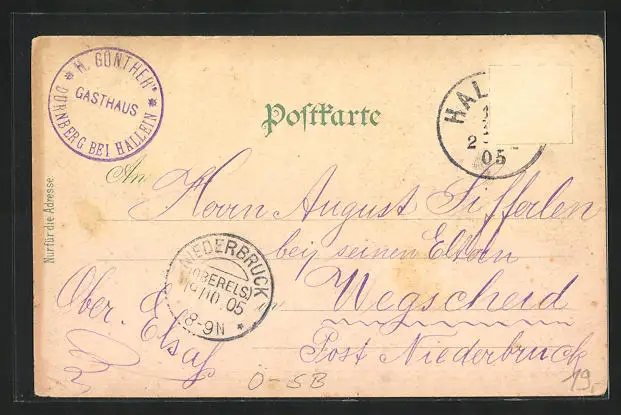 * H. GÜNTHER *
GASTHAUS
DÜRNBERG BEI HALLEIN
Postkarte
HAL
2
05
An
Herrn August Sifferlen
bey seinen Eltern
Wegscheid
Post Niederbruck
Ober. Elsaß
NIEDERBRUCK
(OBERELS.)
19/10.05
8-9N
*
Nur für die Adresse.
Ö-SB
19,